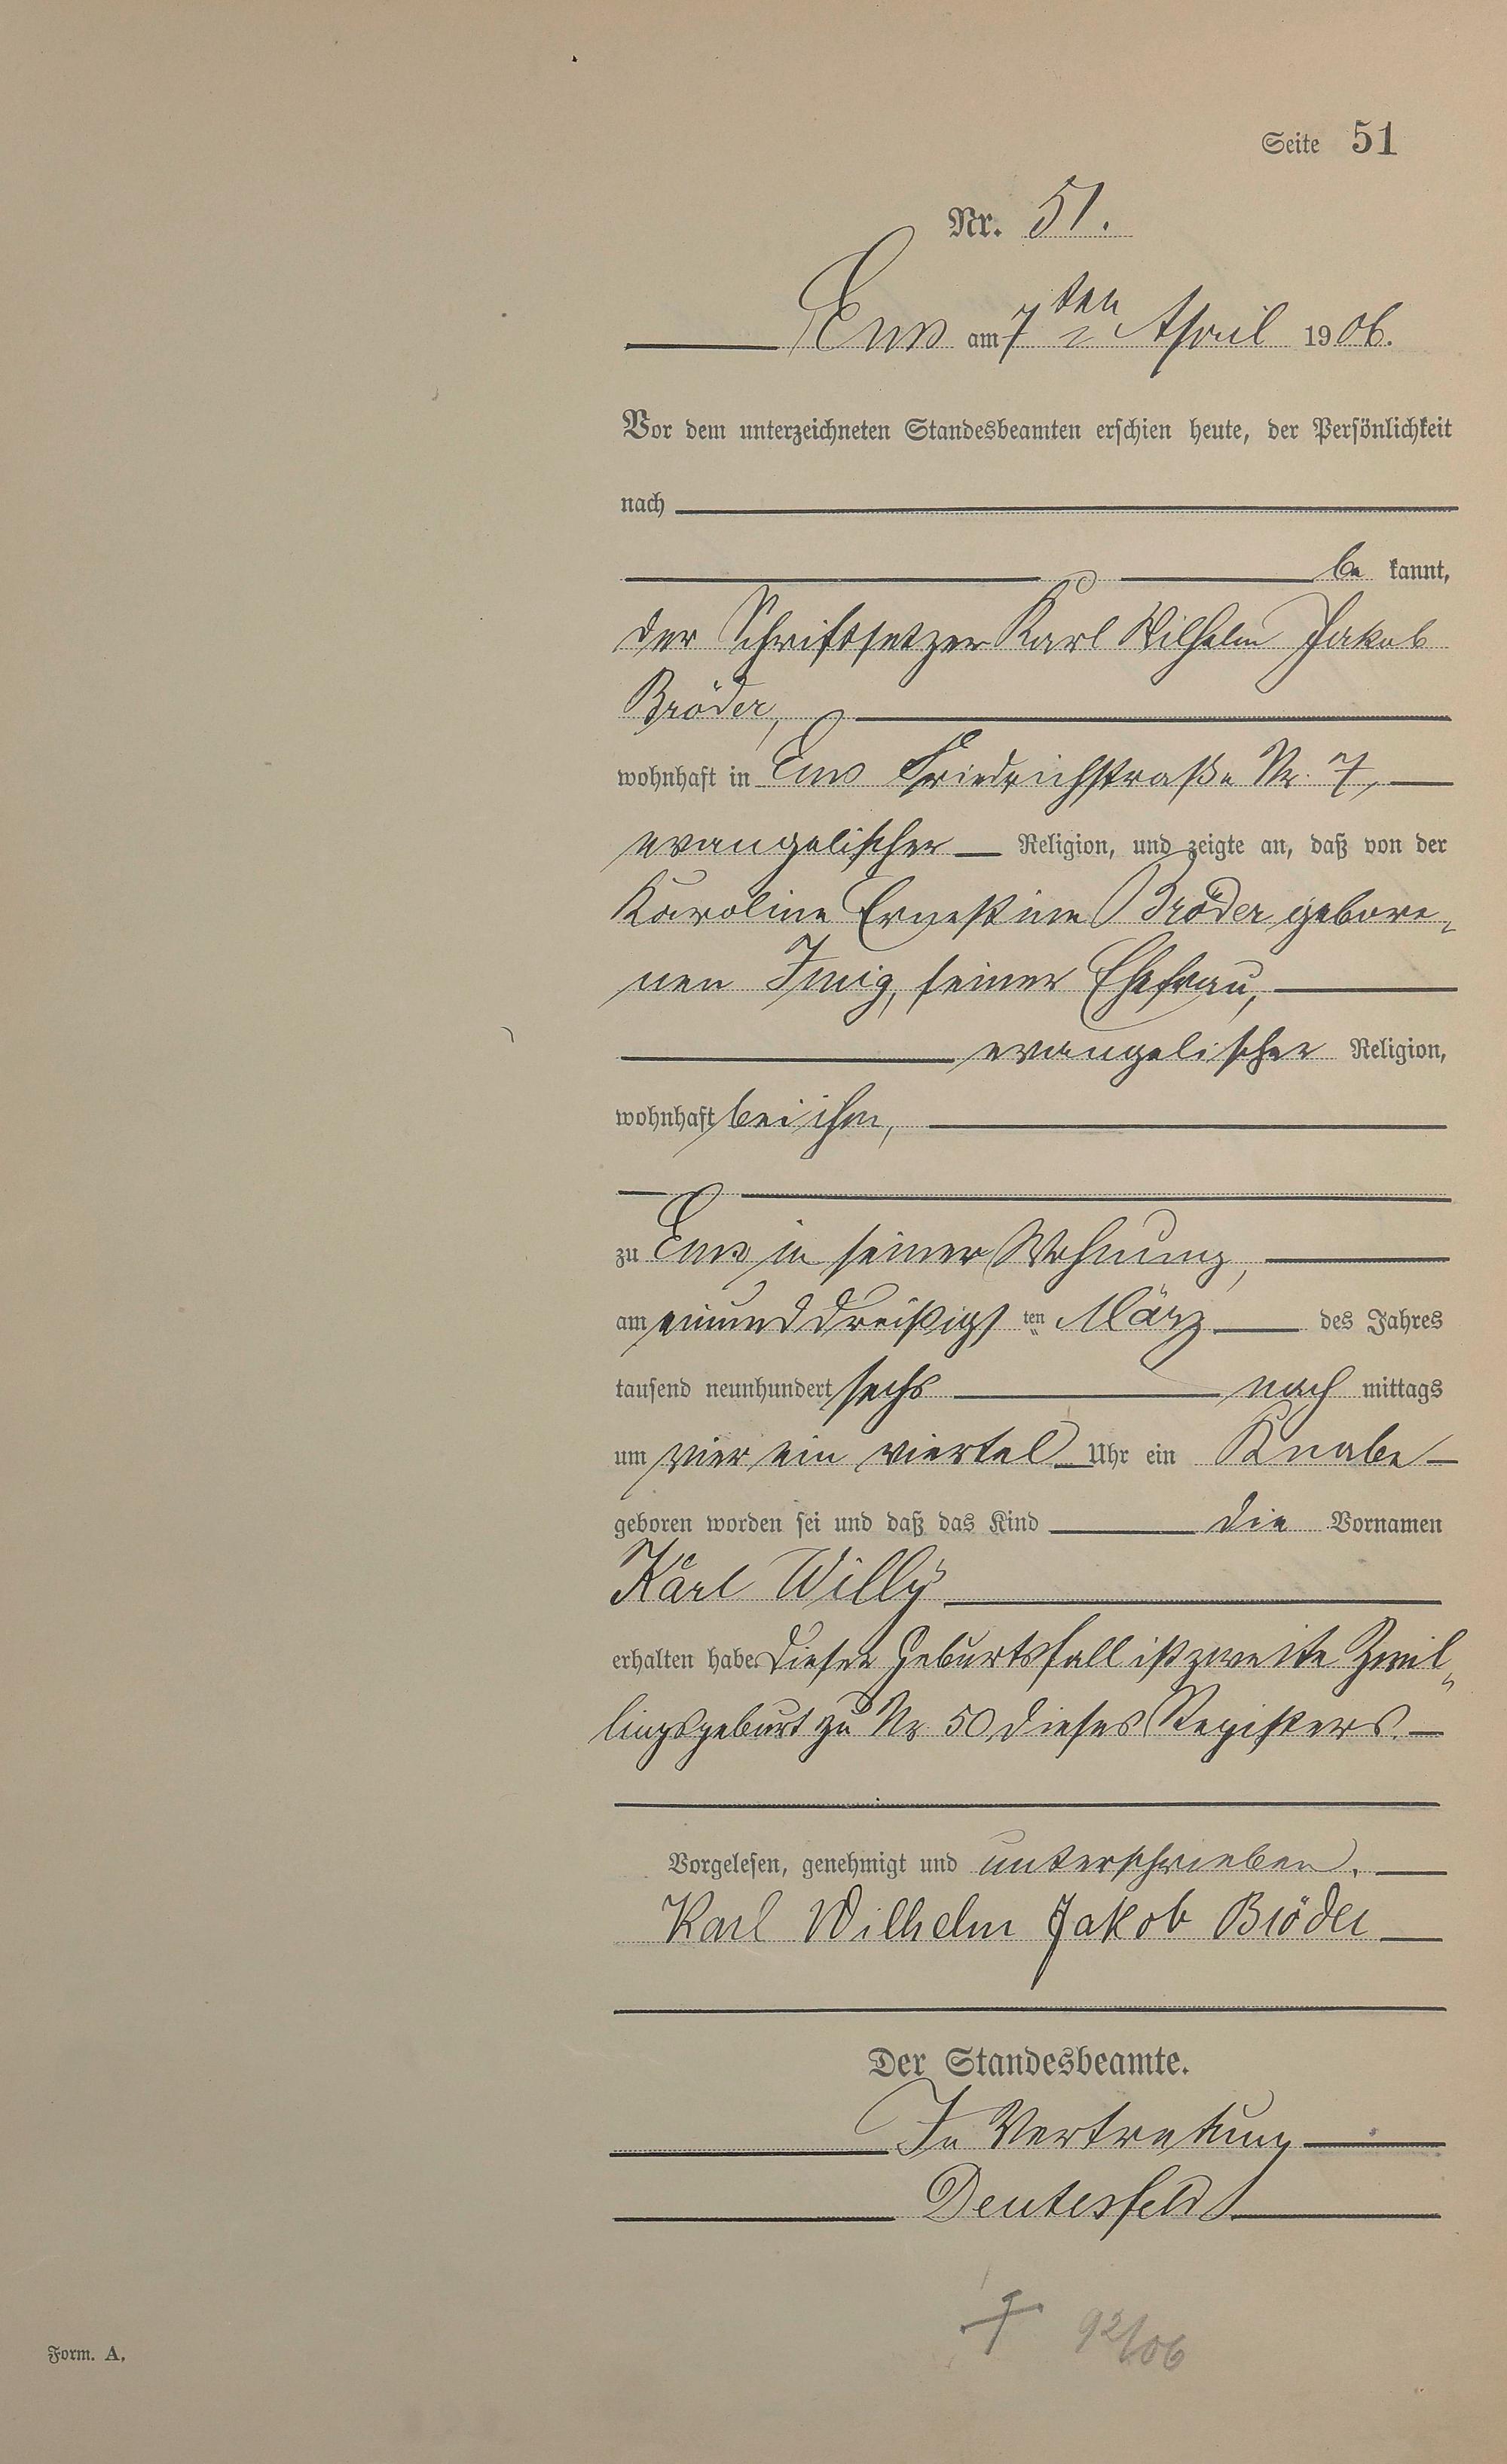 Seite 51
Nr. 51.
Ems am 7ten April 1906.
Vor dem unterzeichneten Standesbeamten erschien heute, der Persönlichkeit
nach
be kannt,
der Schriftsetzer Karl Wilhelm Jakob
Bröder,
wohnhaft in Ems Friedrichstraße Nr. 7,
evangelischer Religion, und zeigte an, daß von der
Karoline Ernestine Bröder gebore-
nen Imig, seiner Ehefrau,
evangelischer Religion,
wohnhaft bei ihm,
zu Ems in seiner Wohnung,
am einunddreißigsten März des Jahres
tausend neunhundert sechs nach mittags
um vier ein viertel Uhr ein Knabe
geboren worden sei und daß das Kind die Vornamen
Karl Willy
erhalten habe. Dieser Geburtsfall ist zweite Zwil-
lingsgeburt zu Nr. 50 dieses Registers.
Vorgelesen, genehmigt und unterschrieben.
Karl Wilhelm Jakob Bröder
Der Standesbeamte.
In Vertretung
Deutesfeld
† 92/06
Form. A.